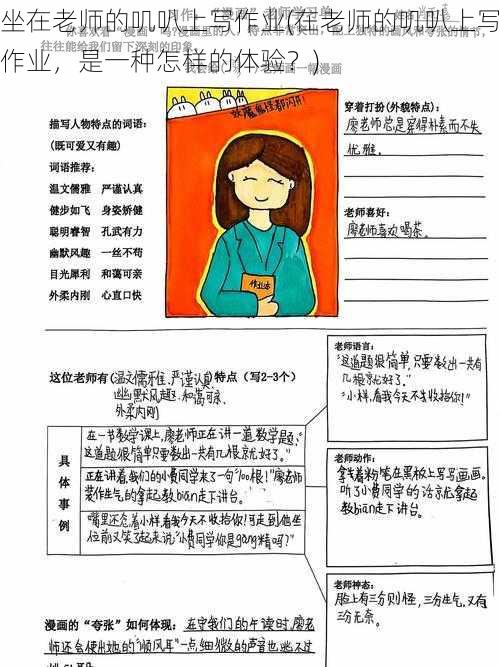 坐在老师的叽叭上写作业(在老师的叽叭上写
作业，是一种怎样的体验？)
描写人物特点的词语：
(既可爱又有趣)
词语推荐：
温文儒雅 严谨认真
健步如飞 身姿矫健
聪明睿智 孔武有力
幽默风趣 一丝不苟
目光犀利 和蔼可亲
外柔内刚 心直口快
妖魔鬼怪都闪开!
作业本
穿着打扮(外貌特点)：
廖老师总是穿得朴素而不失
优雅.
老师喜好：
廖老师喜欢喝茶.
这位老师有(温文儒雅、严谨认真、特点（写2-3个）
幽默风趣、和蔼可亲、
外柔内刚
具体事例
在一节数学课上,廖老师正在讲一道数学题:
"这道题很简单只要数出一共有几根就好了。"
正在讲着,我们的小费同学来了一句"100根!"廖老师
装作生气的拿起教bian走下讲台.
嘴里还念着小样,看我今天不收拾你!可走到他坐
位前又笑了起来说:"小费同学你是gang精吗?"
老师语言：
"这道题很简单,只要数出一共有
几根就好了."
"小样,看我今天不收拾你!"
老师动作：
拿着粉笔在黑板上写写画画.
听了小费同学的话就拿起
教bian走下讲台.
老师神态：
脸上有三分则怪,三分生气,又有
三分无奈.
漫画的“夸张”如何体现：在守我们的午读时,廖老
师还会使出她的"顺风耳"一点细微的声音也逃不过